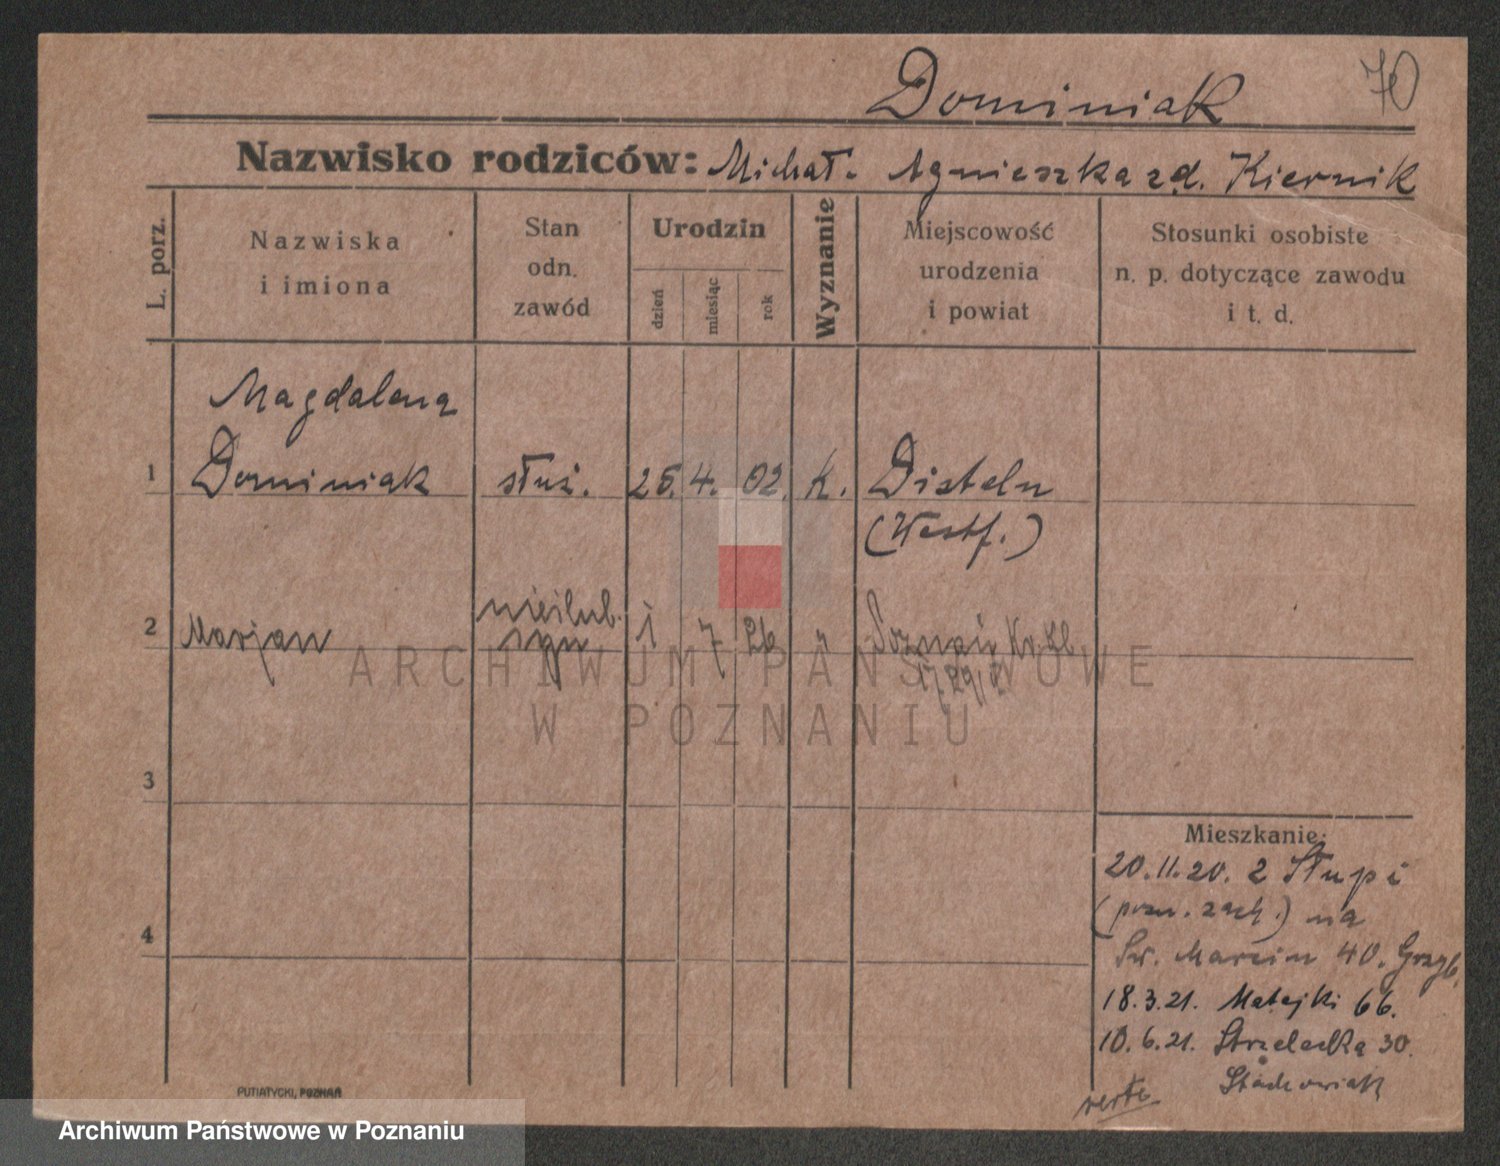 Dominiak 70
Nazwisko rodziców: Michał. Agnieszka zd. Kiernik
L. porz.
Nazwiska
i imiona
Stan
odn.
zawód
Urodzin
dzień
miesiąc
rok
Wyznanie
Miejscowość
urodzenia
i powiat
Stosunki osobiste
n. p. dotyczące zawodu
i t. d.
Magdalena
1 Dominiak służ. 25. 4. 02. k. Disteln
(Westf.)
nieślub.
2 Marjan syn 1 7 26 " Poznań
ARCHIWUM PAŃSTWOWE
W POZNANIU
3
4
Mieszkanie:
20.11.20. z Słupi
(pozn. zach.) na
Św. Marcin 40. Grzyb.
18.3.21. Matejki 66.
10.6.21. Strzelecka 30.
Stachowiak
verte
PUTIATYCKI, POZNAŃ
Archiwum Państwowe w Poznaniu